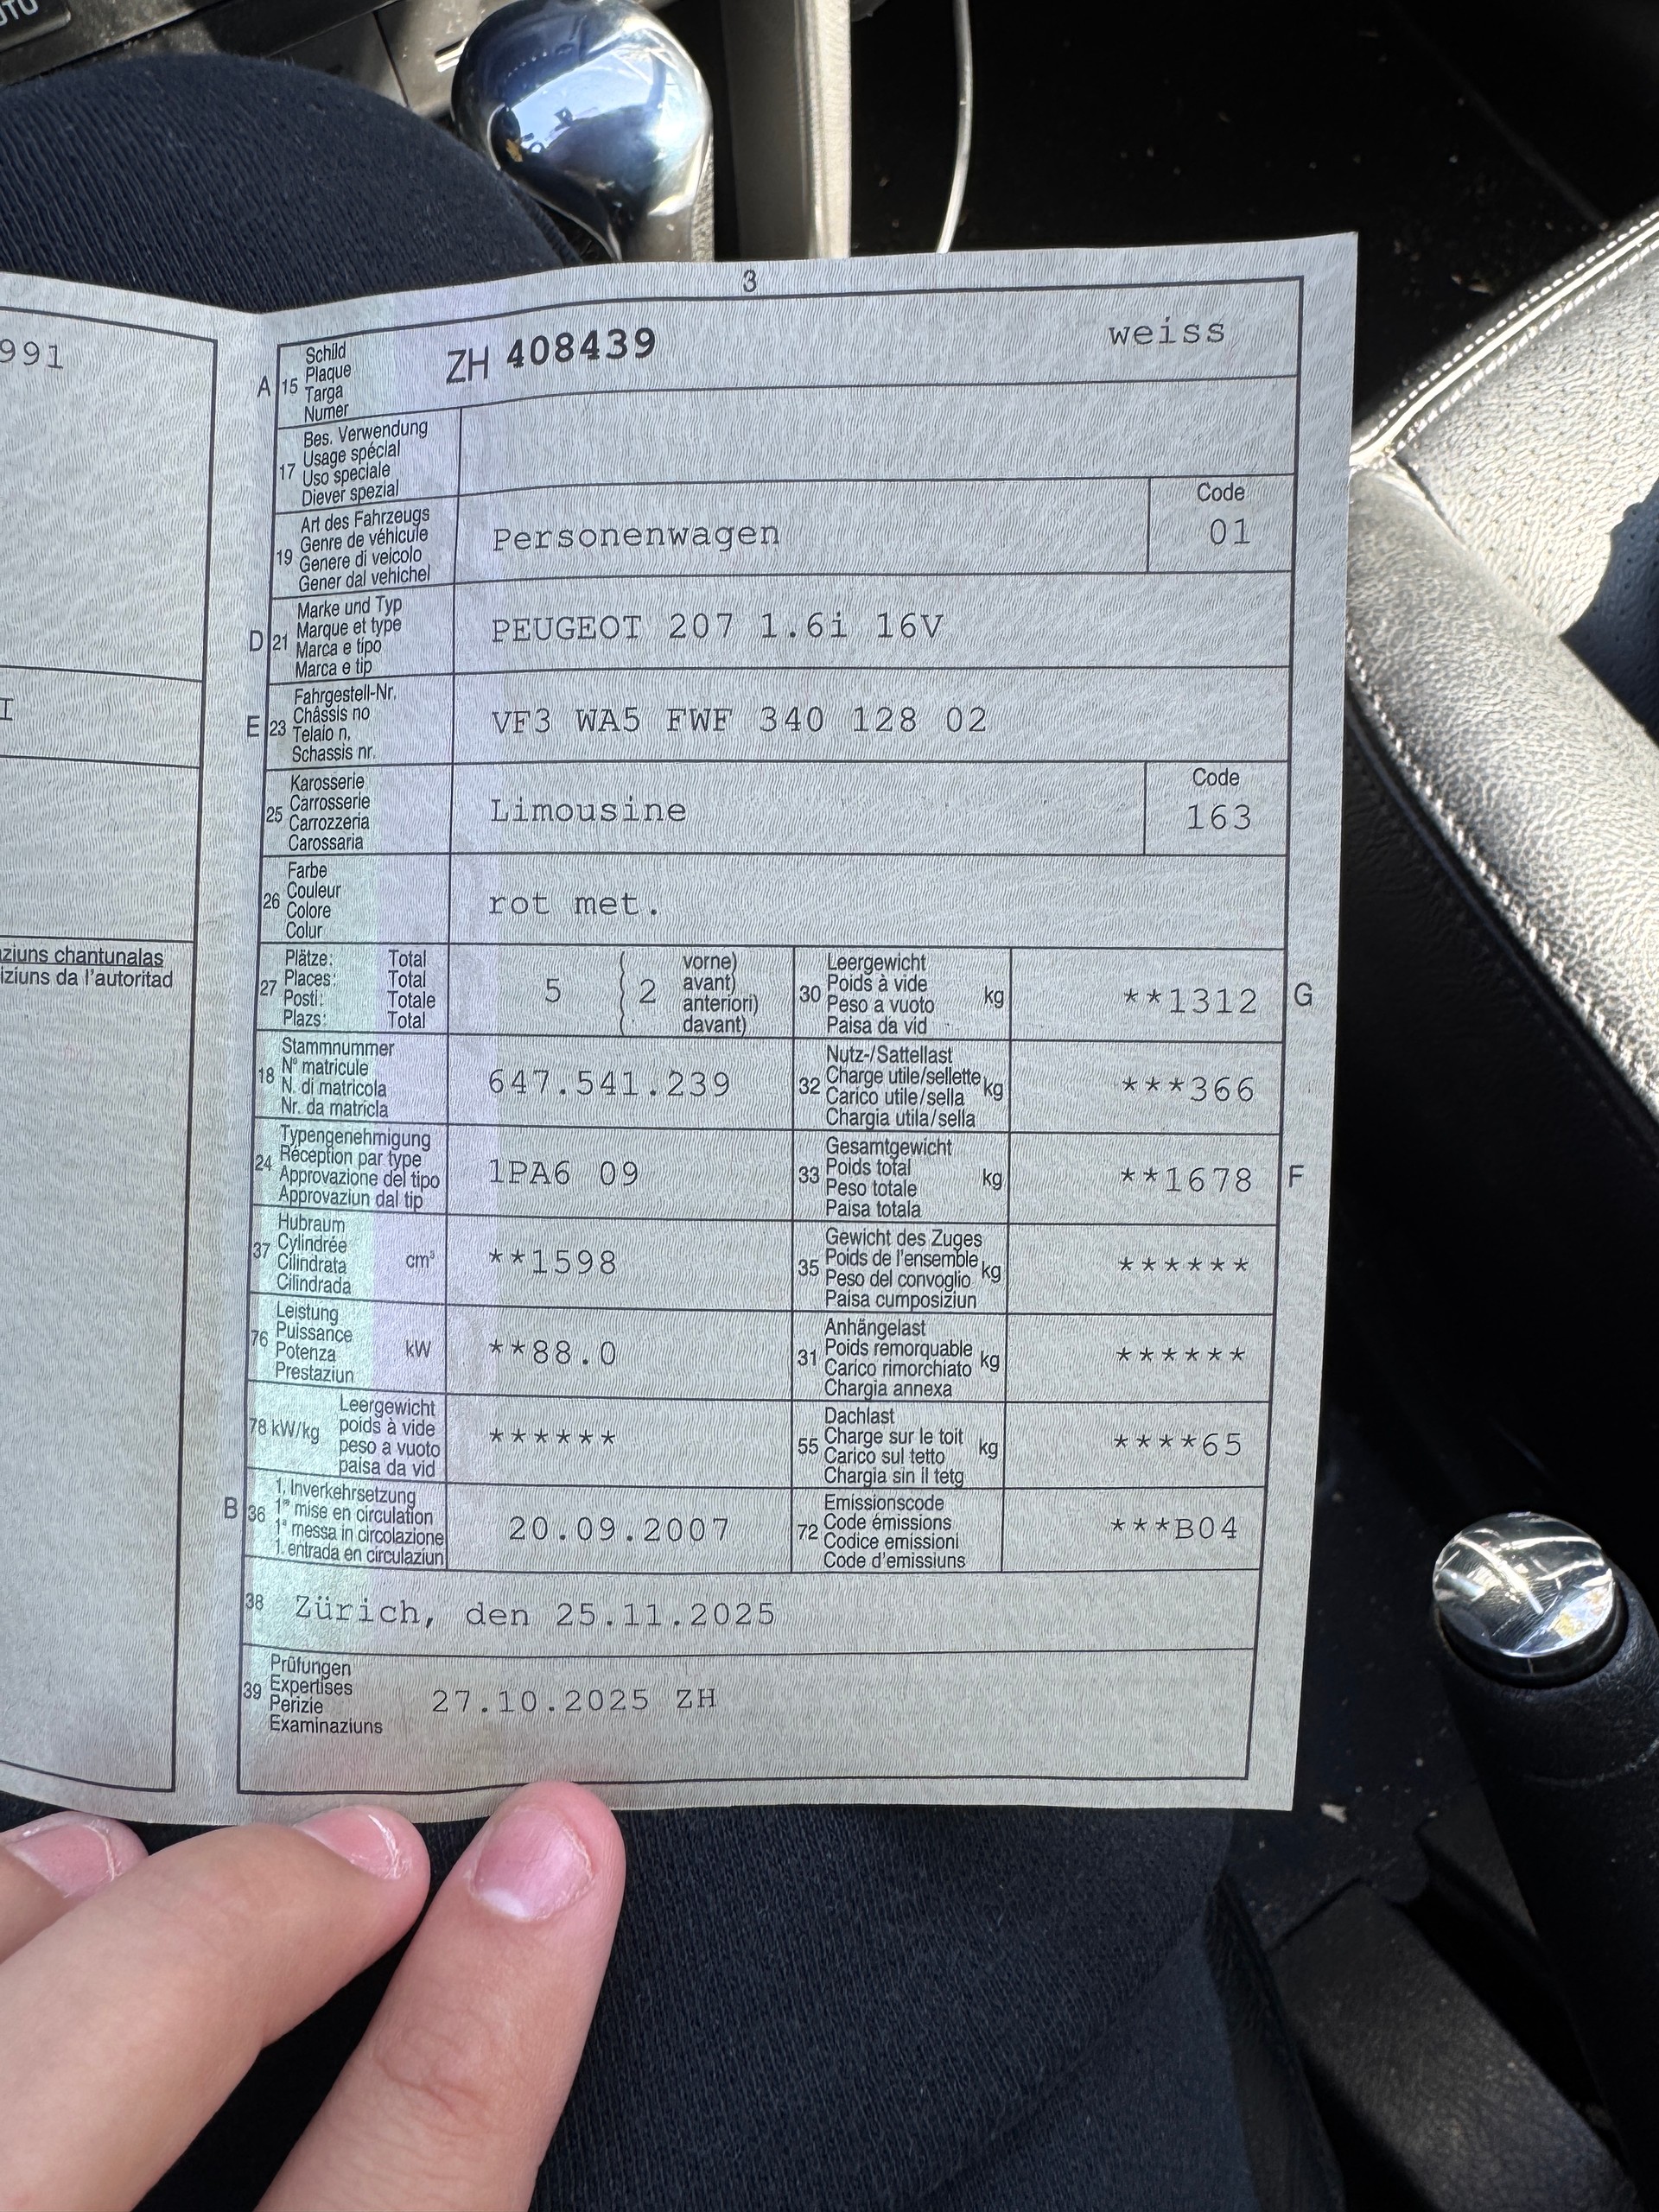 UTO
991
I
ziuns chantunalas
iziuns da l'autoritad
3
A 15 Schild
Plaque
Targa
Numer
ZH 408439
weiss
17 Bes. Verwendung
Usage spécial
Uso speciale
Diever spezial
19 Art des Fahrzeugs
Genre de véhicule
Genere di veicolo
Gener dal vehichel
Personenwagen
Code
01
D 21 Marke und Typ
Marque et type
Marca e tipo
Marca e tip
PEUGEOT 207 1.6i 16V
E 23 Fahrgestell-Nr.
Châssis no
Telaio n.
Schassis nr.
VF3 WA5 FWF 340 128 02
25 Karosserie
Carrosserie
Carrozzeria
Carossaria
Limousine
Code
163
26 Farbe
Couleur
Colore
Colur
rot met.
27 Plätze: Total
Places: Total
Posti: Totale
Plazs: Total
5 ( 2 vorne)
avant)
anteriori)
davant)
30 Leergewicht
Poids à vide
Peso a vuoto
Paisa da vid
kg
**1312
G
18 Stammnummer
N° matricule
N. di matricola
Nr. da matricla
647.541.239
32 Nutz-/Sattellast
Charge utile/sellette
Carico utile/sella
Chargia utila/sella
kg
***366
24 Typengenehmigung
Réception par type
Approvazione del tipo
Approvaziun dal tip
1PA6 09
33 Gesamtgewicht
Poids total
Peso totale
Paisa totala
kg
**1678
F
37 Hubraum
Cylindrée
Cilindrata
Cilindrada
cm³
**1598
35 Gewicht des Zuges
Poids de l'ensemble
Peso del convoglio
Paisa cumposiziun
kg
******
76 Leistung
Puissance
Potenza
Prestaziun
kW
**88.0
31 Anhängelast
Poids remorquable
Carico rimorchiato
Chargia annexa
kg
******
78 kW/kg Leergewicht
poids à vide
peso a vuoto
paisa da vid
******
55 Dachlast
Charge sur le toit
Carico sul tetto
Chargia sin il tetg
kg
****65
B 36 1. Inverkehrsetzung
1re mise en circulation
1a messa in circolazione
1. entrada en circulaziun
20.09.2007
72 Emissionscode
Code émissions
Codice emissioni
Code d'emissiuns
***B04
38 Zürich, den 25.11.2025
39 Prüfungen
Expertises
Perizie
Examinaziuns
27.10.2025 ZH